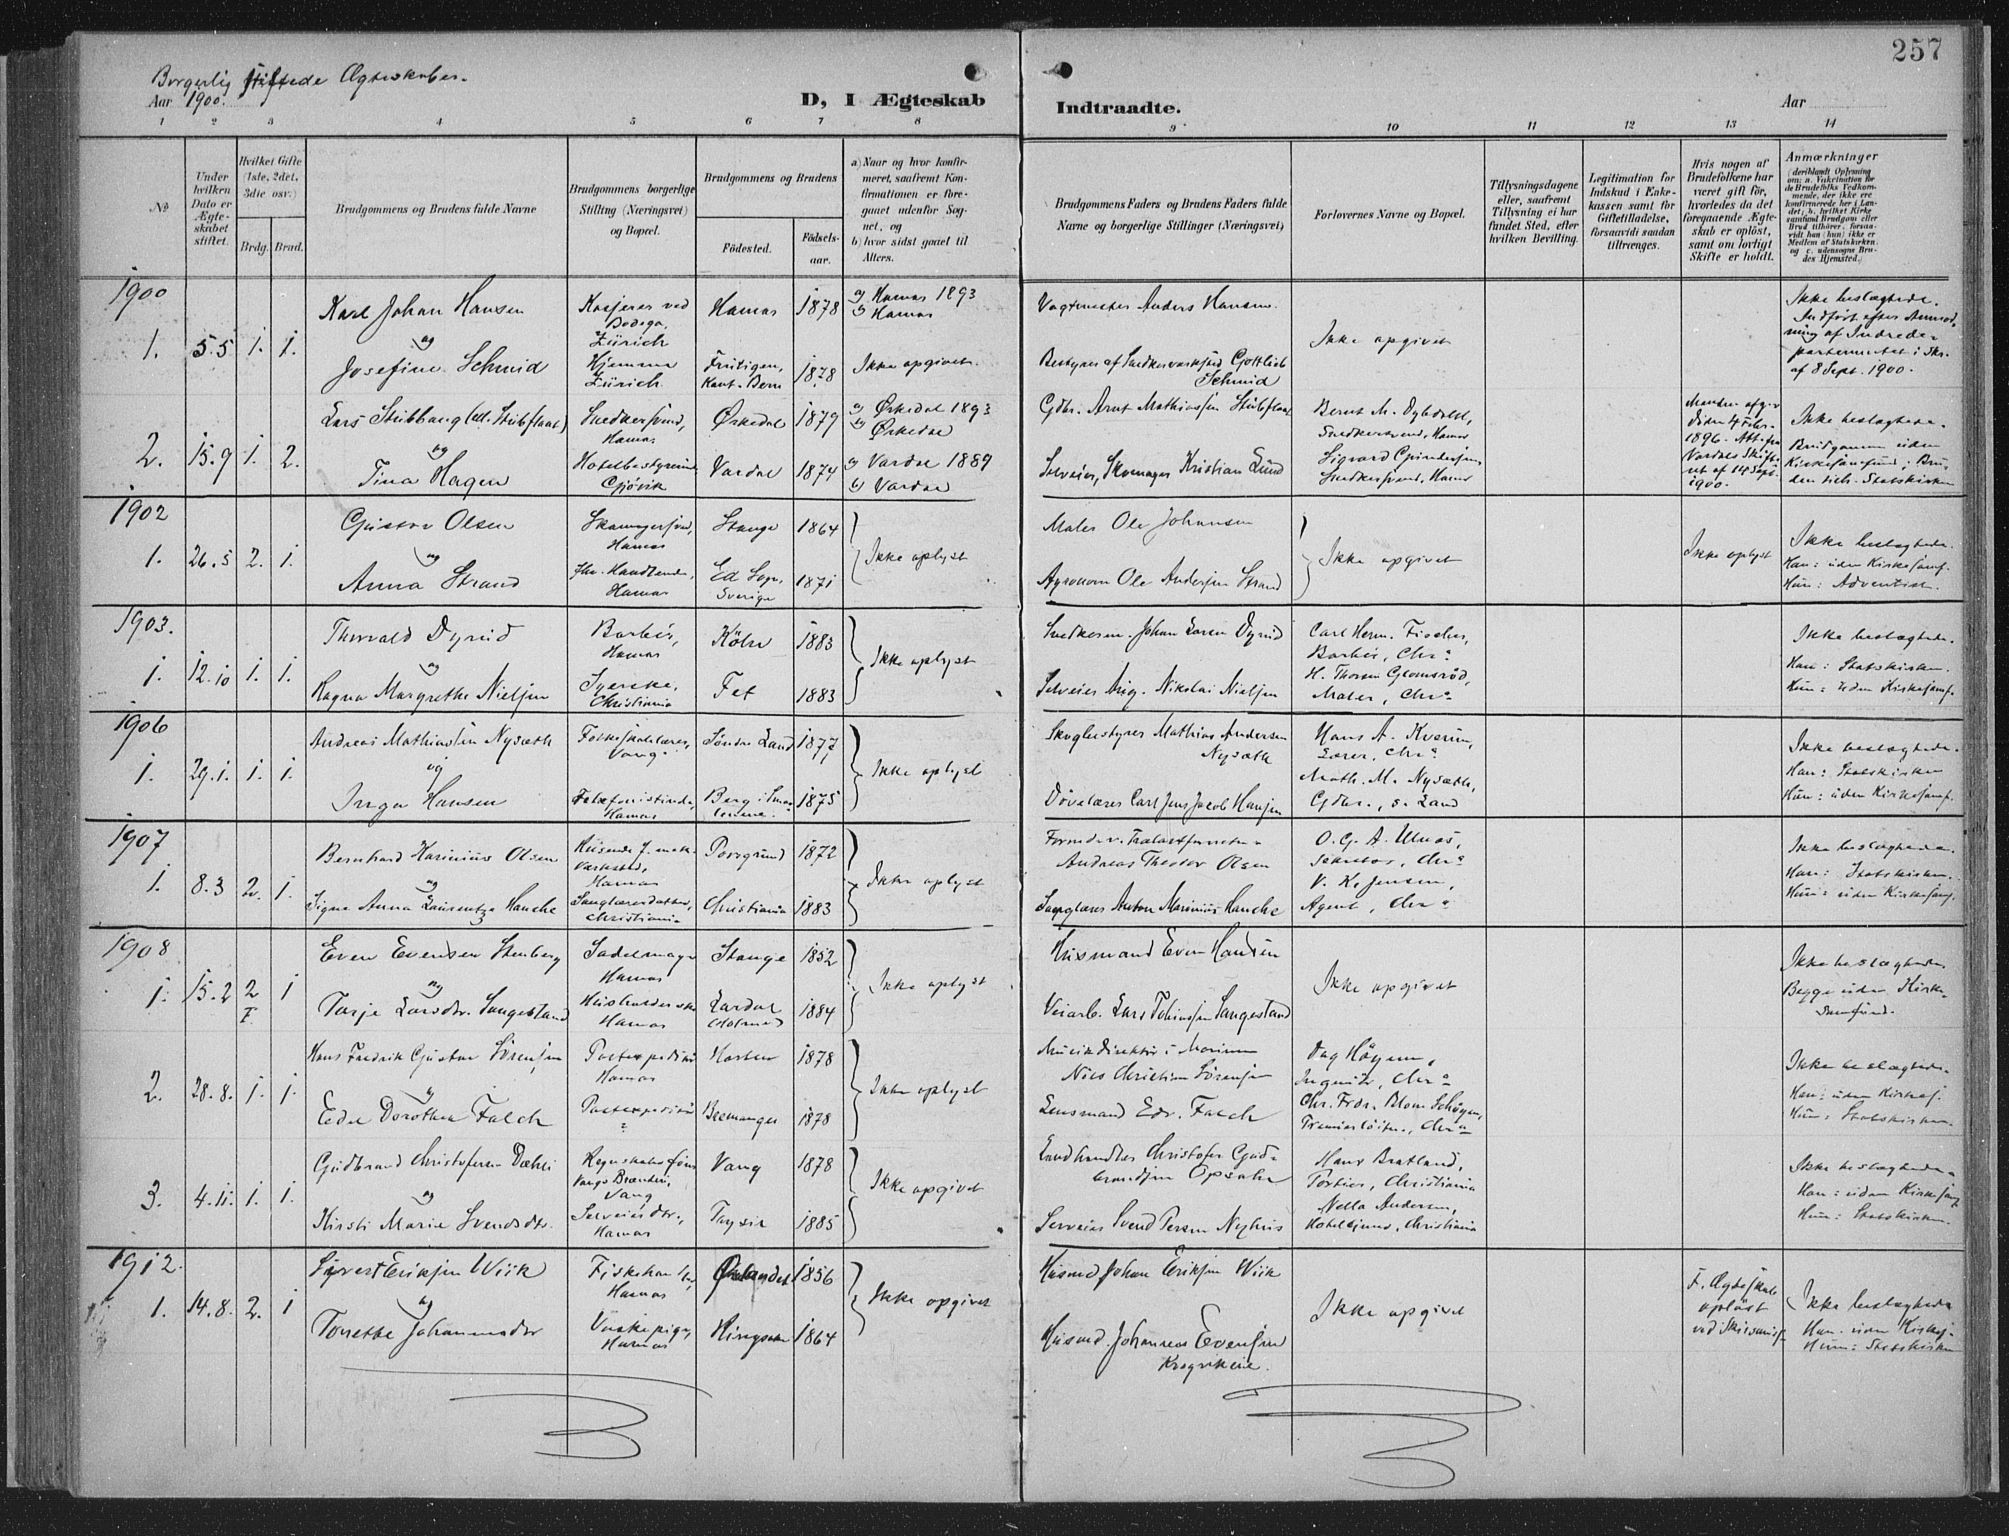 257
Borgerlig stiftede Ægteskaber.
Aar 1900.
D, I Ægteskab
Indtraadte.
Aar
1 2 3 4 5 6 7 8 9 10 11 12 13 14
№
Under
hvilken
Dato er
Ægte-
skabet
stiftet.
Hvilket Gifte
(1ste, 2det,
3die osv.)
Brdg. Brud.
Brudgommens og Brudens fulde Navne
Brudgommens borgerlige
Stilling (Næringsvei)
og Bopæl.
Brudgommens og Brudens
Fødested.
Fødsels-
aar.
a) Naar og hvor konfir-
meret, saafremt Kon-
firmationen er fore-
gaaet udenfor Sog-
net, og
b) hvor sidst gaaet til
Alters.
Brudgommens Faders og Brudens Faders fulde
Navne og borgerlige Stillinger (Næringsvei)
Forlovernes Navne og Bopæl.
Tillysningsdagene
eller, saafremt
Tillysning ei har
fundet Sted, efter
hvilken Bevilling.
Legitimation for
Indskud i Enke-
kassen samt for
Giftetilladelse,
forsaavidt saadan
tiltrænges.
Hvis nogen af
Brudefolkene har
været gift før,
hvorledes da det
foregaaende Ægte-
skab er opløst,
samt om lovligt
Skifte er holdt.
Anmærkninger
(deriblandt Oplysning
om: a. Vaksination for
de Brudefolks Vedkom-
mende, der ikke ere
konfirmerede her i Lan-
det; b. hvilket Kirke
samfund Brudgom eller
Brud tilhører, forsaa-
vidt han (hun) ikke er
Medlem af Statskirken.
og c. udensogns Bru-
des Hjemsted.)
1900
1. 5.5 1. 1.
Karl Johan Hansen
og
Josefine Schmid
Kasjerer ved
Bodega,
Zürich
Hjemme
Zürich
Hamar 1878
Frutigen,
Kant. Bern 1878
a) Hamar 1893
b) Hamar
Ikke opgivet.
Vagtmester Anders Hansen
Bestyrer af Snedkerverksted Gottlieb
Schmid
Ikke opgivet
Ikke beslægtede.
Indført efter Anmod-
ning af Indrede-
partementet i Skr.
af 8 Sept. 1900.
2. 15.9 1. 2.
Lars Stubhaug (ell. Stubflaat)
og
Tina Hagen
Snedkersvend,
Hamar
Hotelbestyrerinde
Gjøvik
Ørkedal 1879
Vardal 1874
a) Ørkedal 1893
b) Ørkedal
a) Vardal 1889
b) Vardal
Gdbr. Arnt Mathiassen Stubflaat
Selveier, Skomager Kristian Lund
Bernt M. Dybdahl,
Snedkersvend, Hamar
Sigvard Gundersen,
Snedkersvend, Hamar
Manden afgik
Døden 4 Febr.
1896. Att. fra
Vardals Skifte-
ret af 14 Sept.
1900.
Ikke beslægtede.
Brudgommen uden
Kirkesamfund; Bru-
den tilh. Statskirken
1902
1. 26.5 2. 1.
Gustav Olsen
og
Anna Strand
Skomagersvend,
Hamar
Fhv. Handlende,
Hamar
Stange 1864
Ed Sogn,
Sverige 1871
Ikke oplyst
Maler Ole Johansen
Agronom Ole Andersen Strand
Ikke opgivet
Ikke oplyst
Ikke beslægtede.
Han: uden Kirkesamf.
Hun: Adventist.
1903.
1. 12.10 1. 1.
Thorvald Dyrud
og
Ragna Margrethe Nielsen
Barber,
Hamar
Syerske,
Christiania
Köln 1883
Fet 1883
Ikke oplyst
Snedkerm. Johan Loren Dyrud
Selveier Aug. Nikolai Nielsen
Carl Herm. Fischer,
Barber, Chra
H. Thorsen Glomsrød,
Maler, Chra
Ikke beslægtede.
Han: Statskirken.
Hun: uden Kirkesamf.
1906
1. 29.1. 1. 1.
Andreas Mathiassen Nysæth
og
Inga Hansen
Folkeskolelærer,
Vang.
Telefonistinde,
Hamar
Søndre Land 1877
Berg i Smaa-
lenene. 1875
Ikke oplyst
Skogbestyrer Mathias Andersen
Nysæth
Døvelærer Carl Jens Jacob Hansen
Hans A. Kverum,
Lærer, Chra
Math. M. Nysæth,
Gdbr., S. Land
Ikke beslægtede.
Han: Statskirken
Hun: uden Kirkesamf.
1907
1. 8.3 2. 1.
Bernhard Marinius Olsen
og
Signe Anna Laurentze Hanche
mek.
Værksted,
Hamar
Sanglærerdatter,
Christiania
Porsgrund 1872
Christiania 1883
Ikke oplyst
Formd. v. Trælastforretn.
Andreas Theodor Olsen
Sanglærer Anton Marinius Hanche
O. G. A. Ulnæs,
Sekretær, Chra
V. K. Jensen,
Agent, Chra
Ikke beslægtede.
Han: Statskirken.
Hun: uden Kirkesamf.
1908
1. 15.2 2 1
Even Evensen Stenberg
og
Tarje Larsdtr. Sangestand
Sadelmager
Hamar
Husholderske
Hamar
Stange 1852
Lardal
1884
Ikke oplyst
Husmand Even Hansen
Veiarb. Lars Tobiassen Sangestand
Ikke opgivet
Ikke beslægtede
Begge uden Kirke-
samfund.
2. 28.8. 1. 1.
Hans Fredrik Gustav Sørensen
og
Edel Dorothea Falch
Postexpeditør
Hamar
Postexpeditør
Horten 1878
Bremanger 1878
Ikke oplyst
Musikdirektør i Marinen
Niels Christian Sørensen
Lensmand Edv. Falch
Dag Høyem,
Ingeniør, Chra
Chr. Frdr. Blom Schøyen,
Premierløitn., Chra
Ikke beslægtede.
Han: uden Kirkes.
Hun: Statskirken
3. 4.11. 1. 1.
Gudbrand Christofersen Dæhli
og
Kirsti Marie Svendsdtr.
Regnskabsfører
Vangs Brænderi,
Vang
Selveierdtr.,
Hamar
Vang 1878
Trysil 1885
Ikke opgivet
Landhandler Christofer Gud-
brandsen Opsahl
Selveier Svend Persen Nyhus
Hans Bratland,
Portier, Christiania
Nella Andersen,
Christiania
Ikke beslægtede.
Han: uden Kirkesamf
Hun: Statskirken
1912.
1. 14.8. 2. 1
Sivert Eriksen Wiik
og
Torette Johannesdtr
Fiskehandler,
Hamar
Vaskepige,
Hamar
Ørlandet 1856
Ringsaker 1864
Ikke opgivet
Husmd Johan Eriksen Wiik
Husmd. Johannes Evensen
Krogvikeie.
Ikke opgivet
F. Ægteskab
opløst
ved Skilsmisse
Ikke beslægtede
Han: uden Kirkes.
Hun: Statskirken